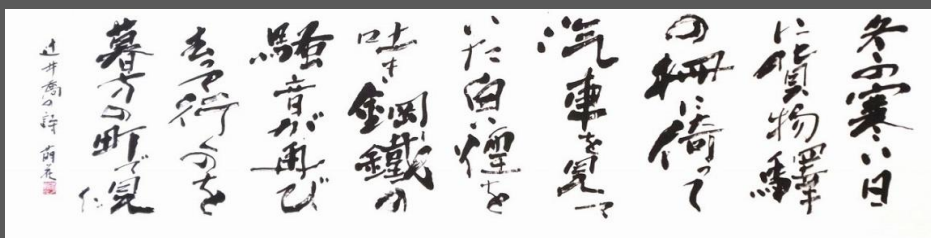 冬の寒い日
に貨物驛
の柵に倚って
汽車を見て
いた白い煙を
吐き鋼鐵の
騒音が再び
去って行くのを
暮方の町で見
辻井喬の詩